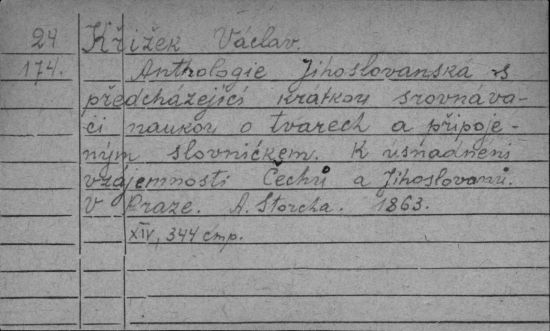 24 Křižek Václav.
174. Anthologie Jihoslovanská s
předcházející kratkou srovnáva-
cí naukou o tvarech a připoje-
ným slovníčkem. K usnadnění
vzájemnosti Čechů a Jihoslovanů.
V Praze. A. Storcha. 1863.
XIV, 344 стр.